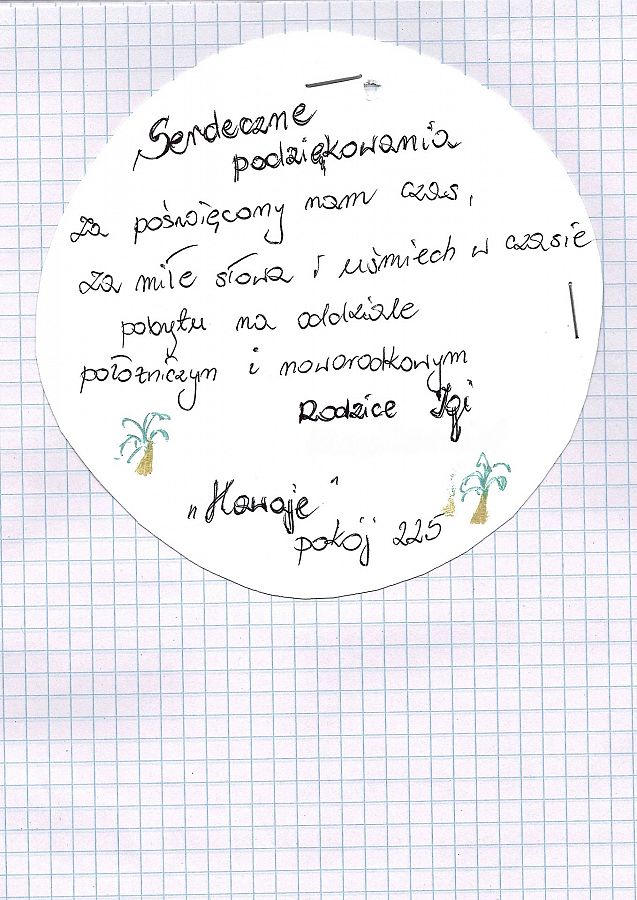 Serdeczne
podziękowania
za poświęcony nam czas,
za miłe słowa i uśmiech w czasie
pobytu na oddziale
położniczym i noworodkowym
Rodzice Igi
"Hawaje"
pokój 225